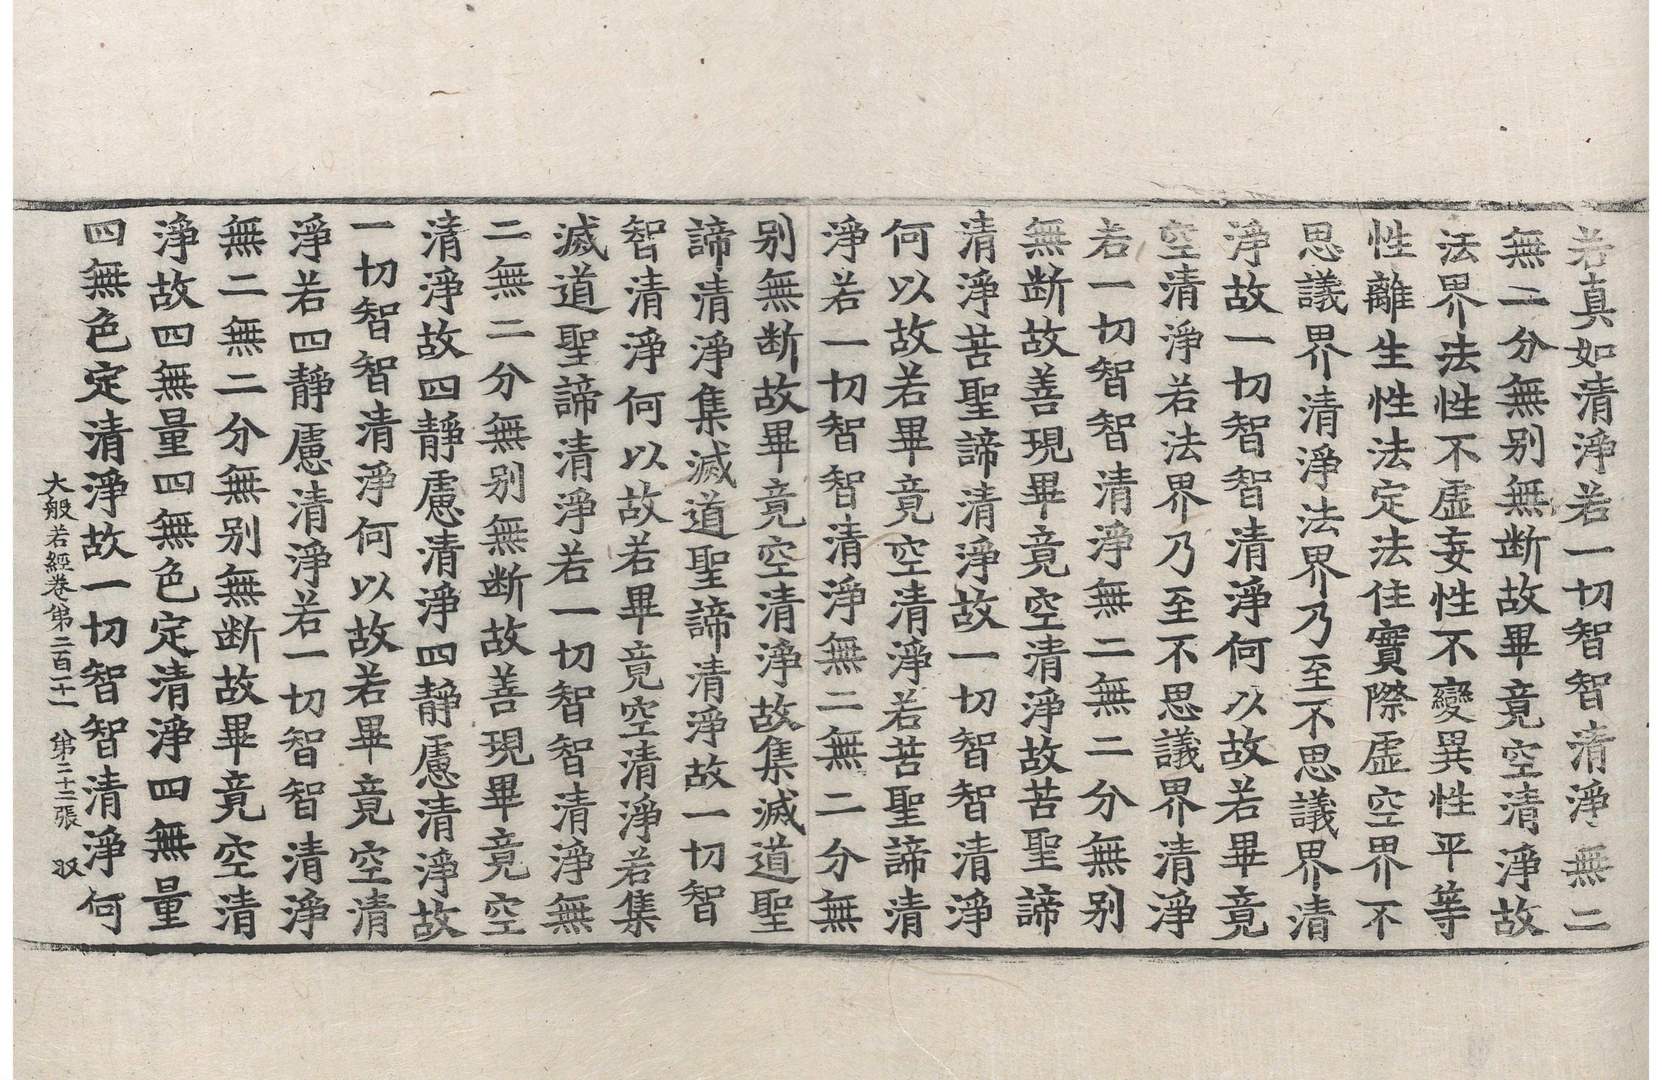 若真如清淨若一切智智清淨無二
無二分無别無断故畢竟空清淨故
法界法性不虛妄性不變異性平等
性離生性法定法住實際虛空界不
思議界清淨法界乃至不思議界清
淨故一切智智清淨何以故若畢竟
空清淨若法界乃至不思議界清淨
若一切智智清淨無二無二分無别
無断故善現畢竟空清淨故苦聖諦
清淨苦聖諦清淨故一切智智清淨
何以故若畢竟空清淨若苦聖諦清
淨若一切智智清淨無二無二分無
别無断故畢竟空清淨故集滅道聖
諦清淨集滅道聖諦清淨故一切智
智清淨何以故若畢竟空清淨若集
滅道聖諦清淨若一切智智清淨無
二無二分無别無断故善現畢竟空
清淨故四靜慮清淨四靜慮清淨故
一切智智清淨何以故若畢竟空清
淨若四靜慮清淨若一切智智清淨
無二無二分無别無断故畢竟空清
淨故四無量四無色定清淨四無量
四無色定清淨故一切智智清淨何
大般若經卷第二百二十一 第二十二張